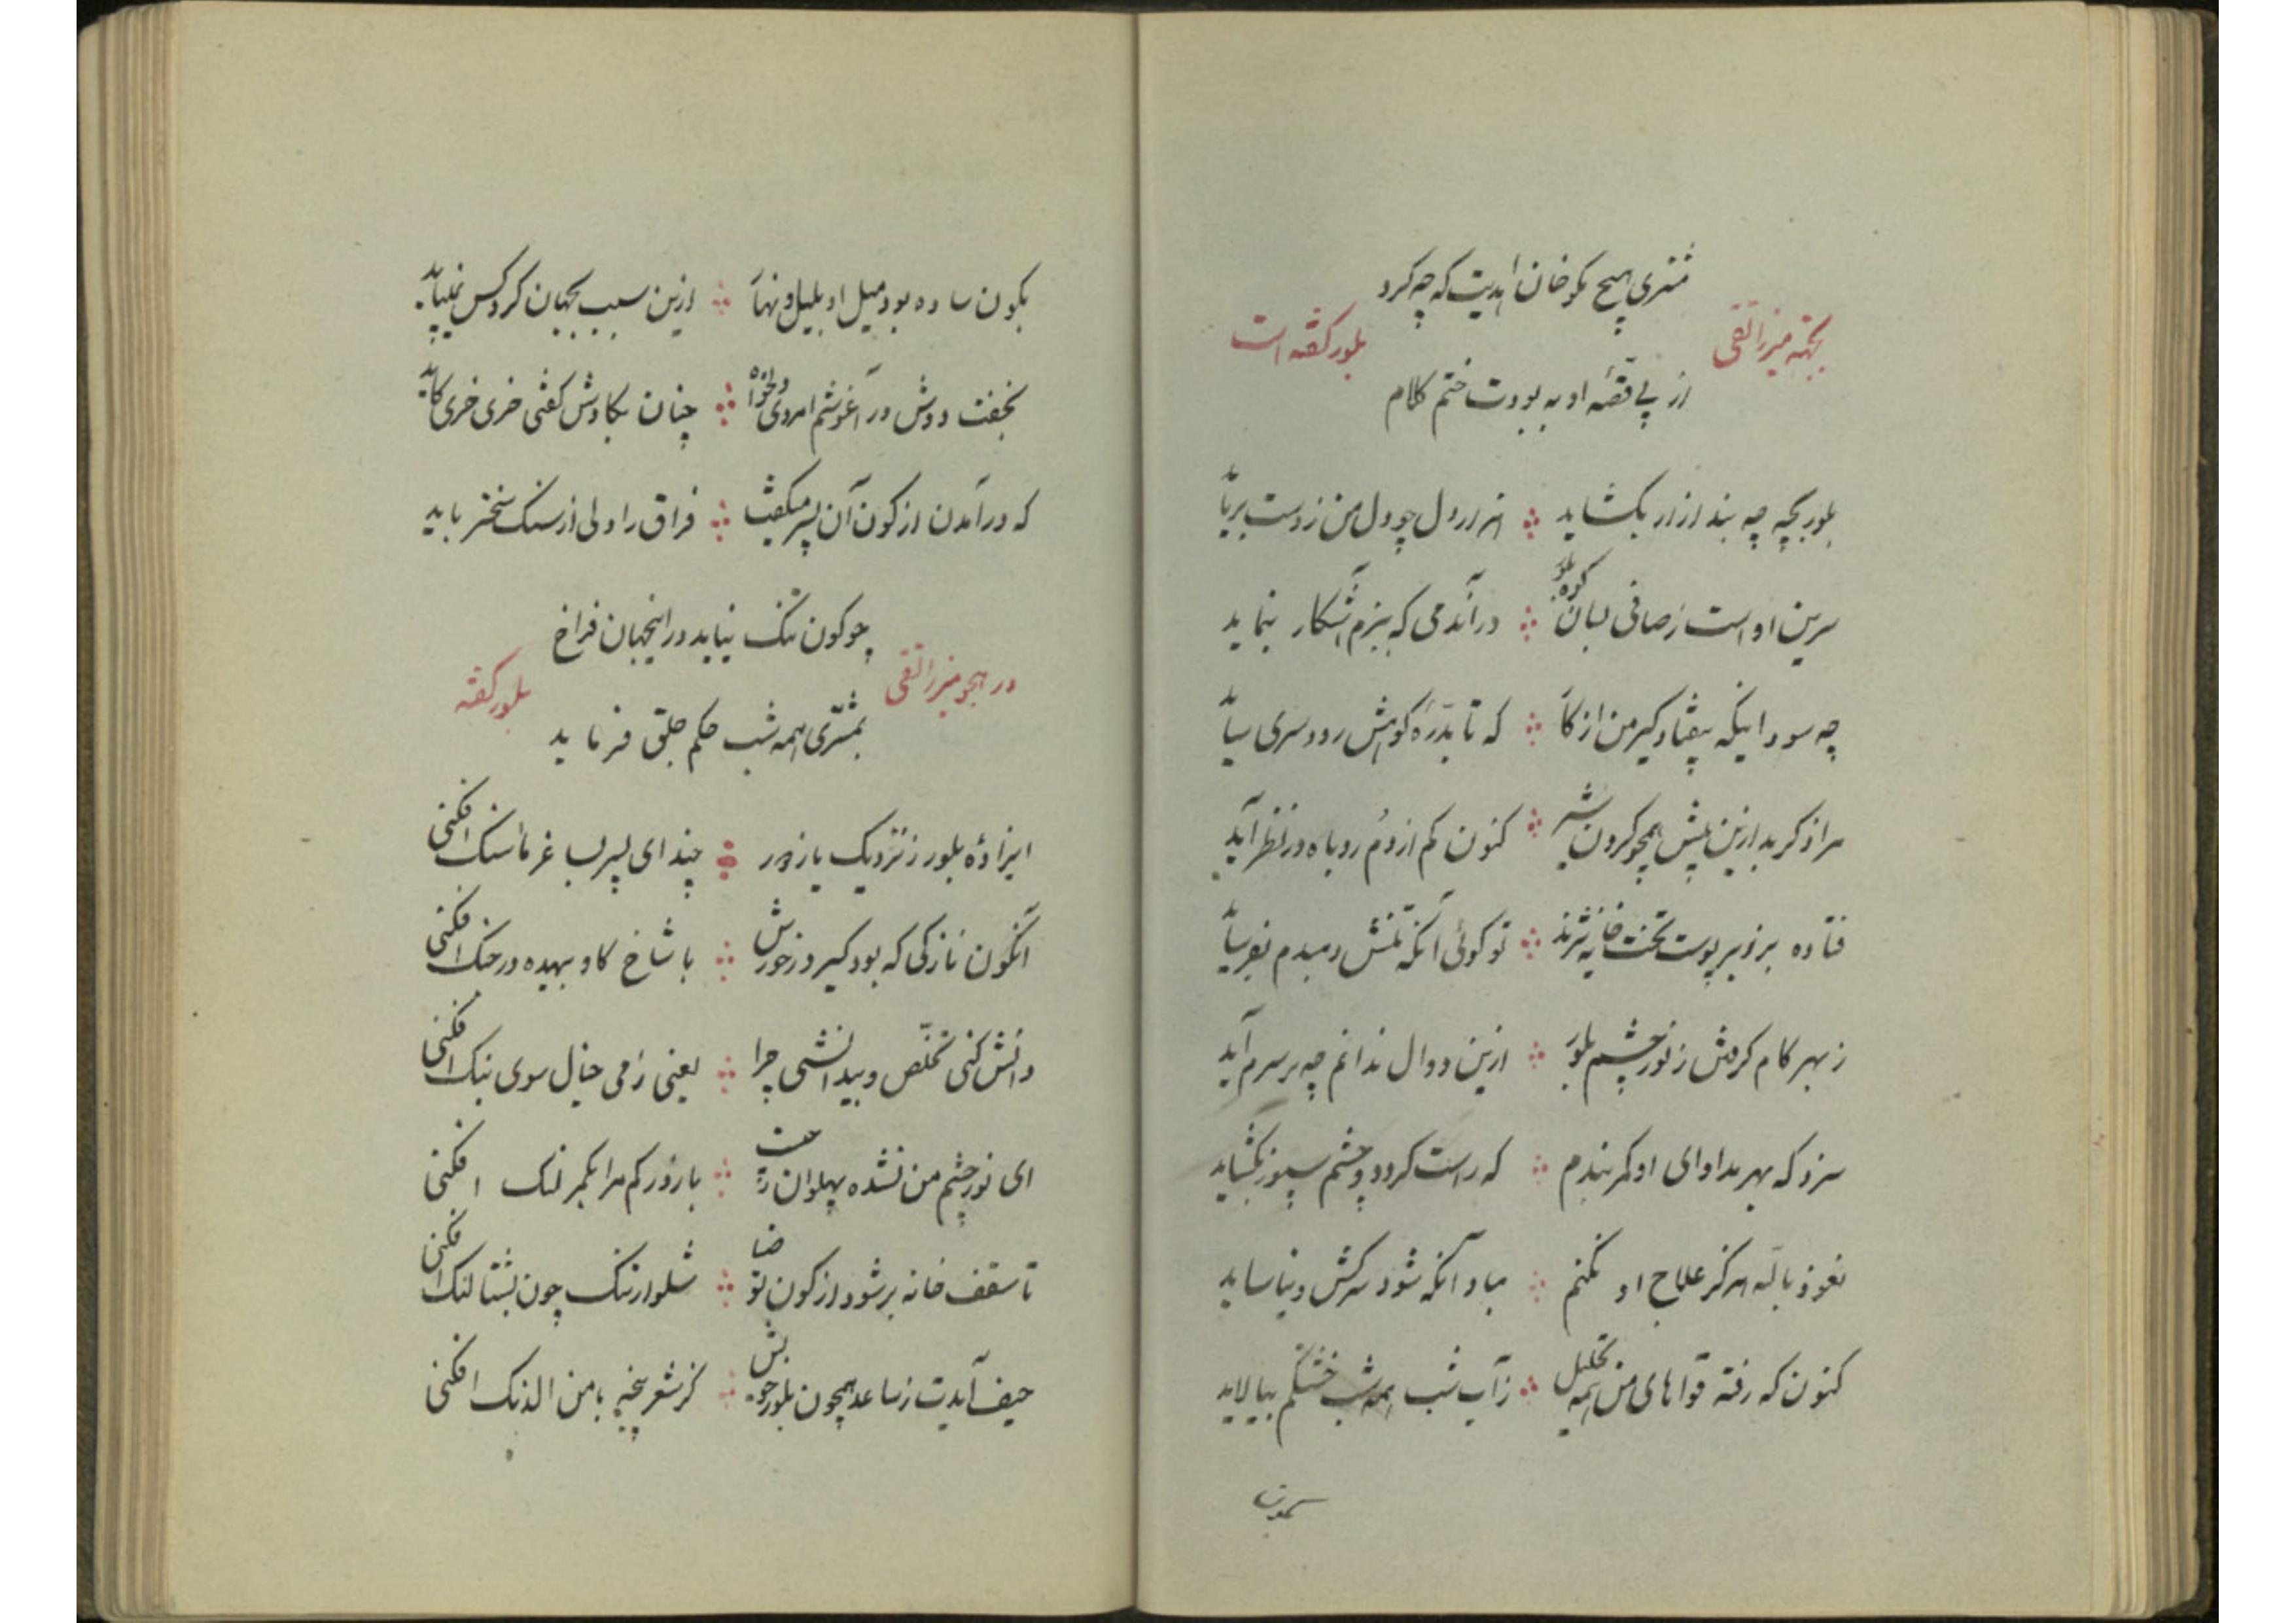 مشتری هیچ نگو خان ابدیت که چه کرد
بجهة میرزا تقی بلور گفته است
از پی قصّه او به بودت ختم کلام
بلور بچه چه بند ازار بگشاید هزار دل چو دل من ز دست برباید
سرین او است ز صافی بسان کوه بلور در آندمی که ببزم آشکار بنماید
چه سود اینکه بیفتاد کیر من از کار که تا بدرّه کونش رود سری ساید
مرا ذکر بد ازین پیش همچو گردن شیر کنون کم از دم روباه در نظر آید
فتاده بر زبر پوست تخت خایه نژند تو گوئی آنکه تنش دمبدم بفرساید
ز بهر کام گرفتن ز نور چشم بلور ازین دوال ندانم چه بر سرم آید
سزد که بهر مداوای او کمر بندم که راست گردد و چشم سپوز بگشاید
نعوذ بالله هرگز علاج او نکنم مباد آنکه شود سرکش و نیاساید
کنون که رفته قواهای من همه تحلیل ز آب شب همه شب خشتکم بیالاید
بکون
بکون ساده بود میل او بلیل و نهار ازین سبب بجهان گرد کس نمیپاید
بخفت دوش در آغوشم امردی دلخواه چنان بگادش گفتی خری خری گاید
که در آمدن از کون آن پسر میگفت فراق را دلی از سنگ سختر باید
چو کون تنگ نیاید در اینجهان فراخ
در هجو میرزا تقی بلور گفته
بمشتری همه شب حکم جلق فرماید
ایزاده بلور ز نزدیک یار دور چند ای پسر بساغر ما سنگ افکنی
آنکون نازکی که بود کیر در خورش با شاخ گاو بیهده در جنگ افکنی
دانش کنی تخلّص و بیدانشی چرا یعنی ز می خیال سوی بنگ افکنی
ای نور چشم من نشده پهلوان با زور کم مرا بکمر لنگ افکنی
تا سقف خانه بر شود از کون تو ضیا شلوار تنگ چون بشتالنگ افکنی
حیف آیدت ز ساعد همچون بلور خویش کز شعر پنجه با من الدنگ افکنی